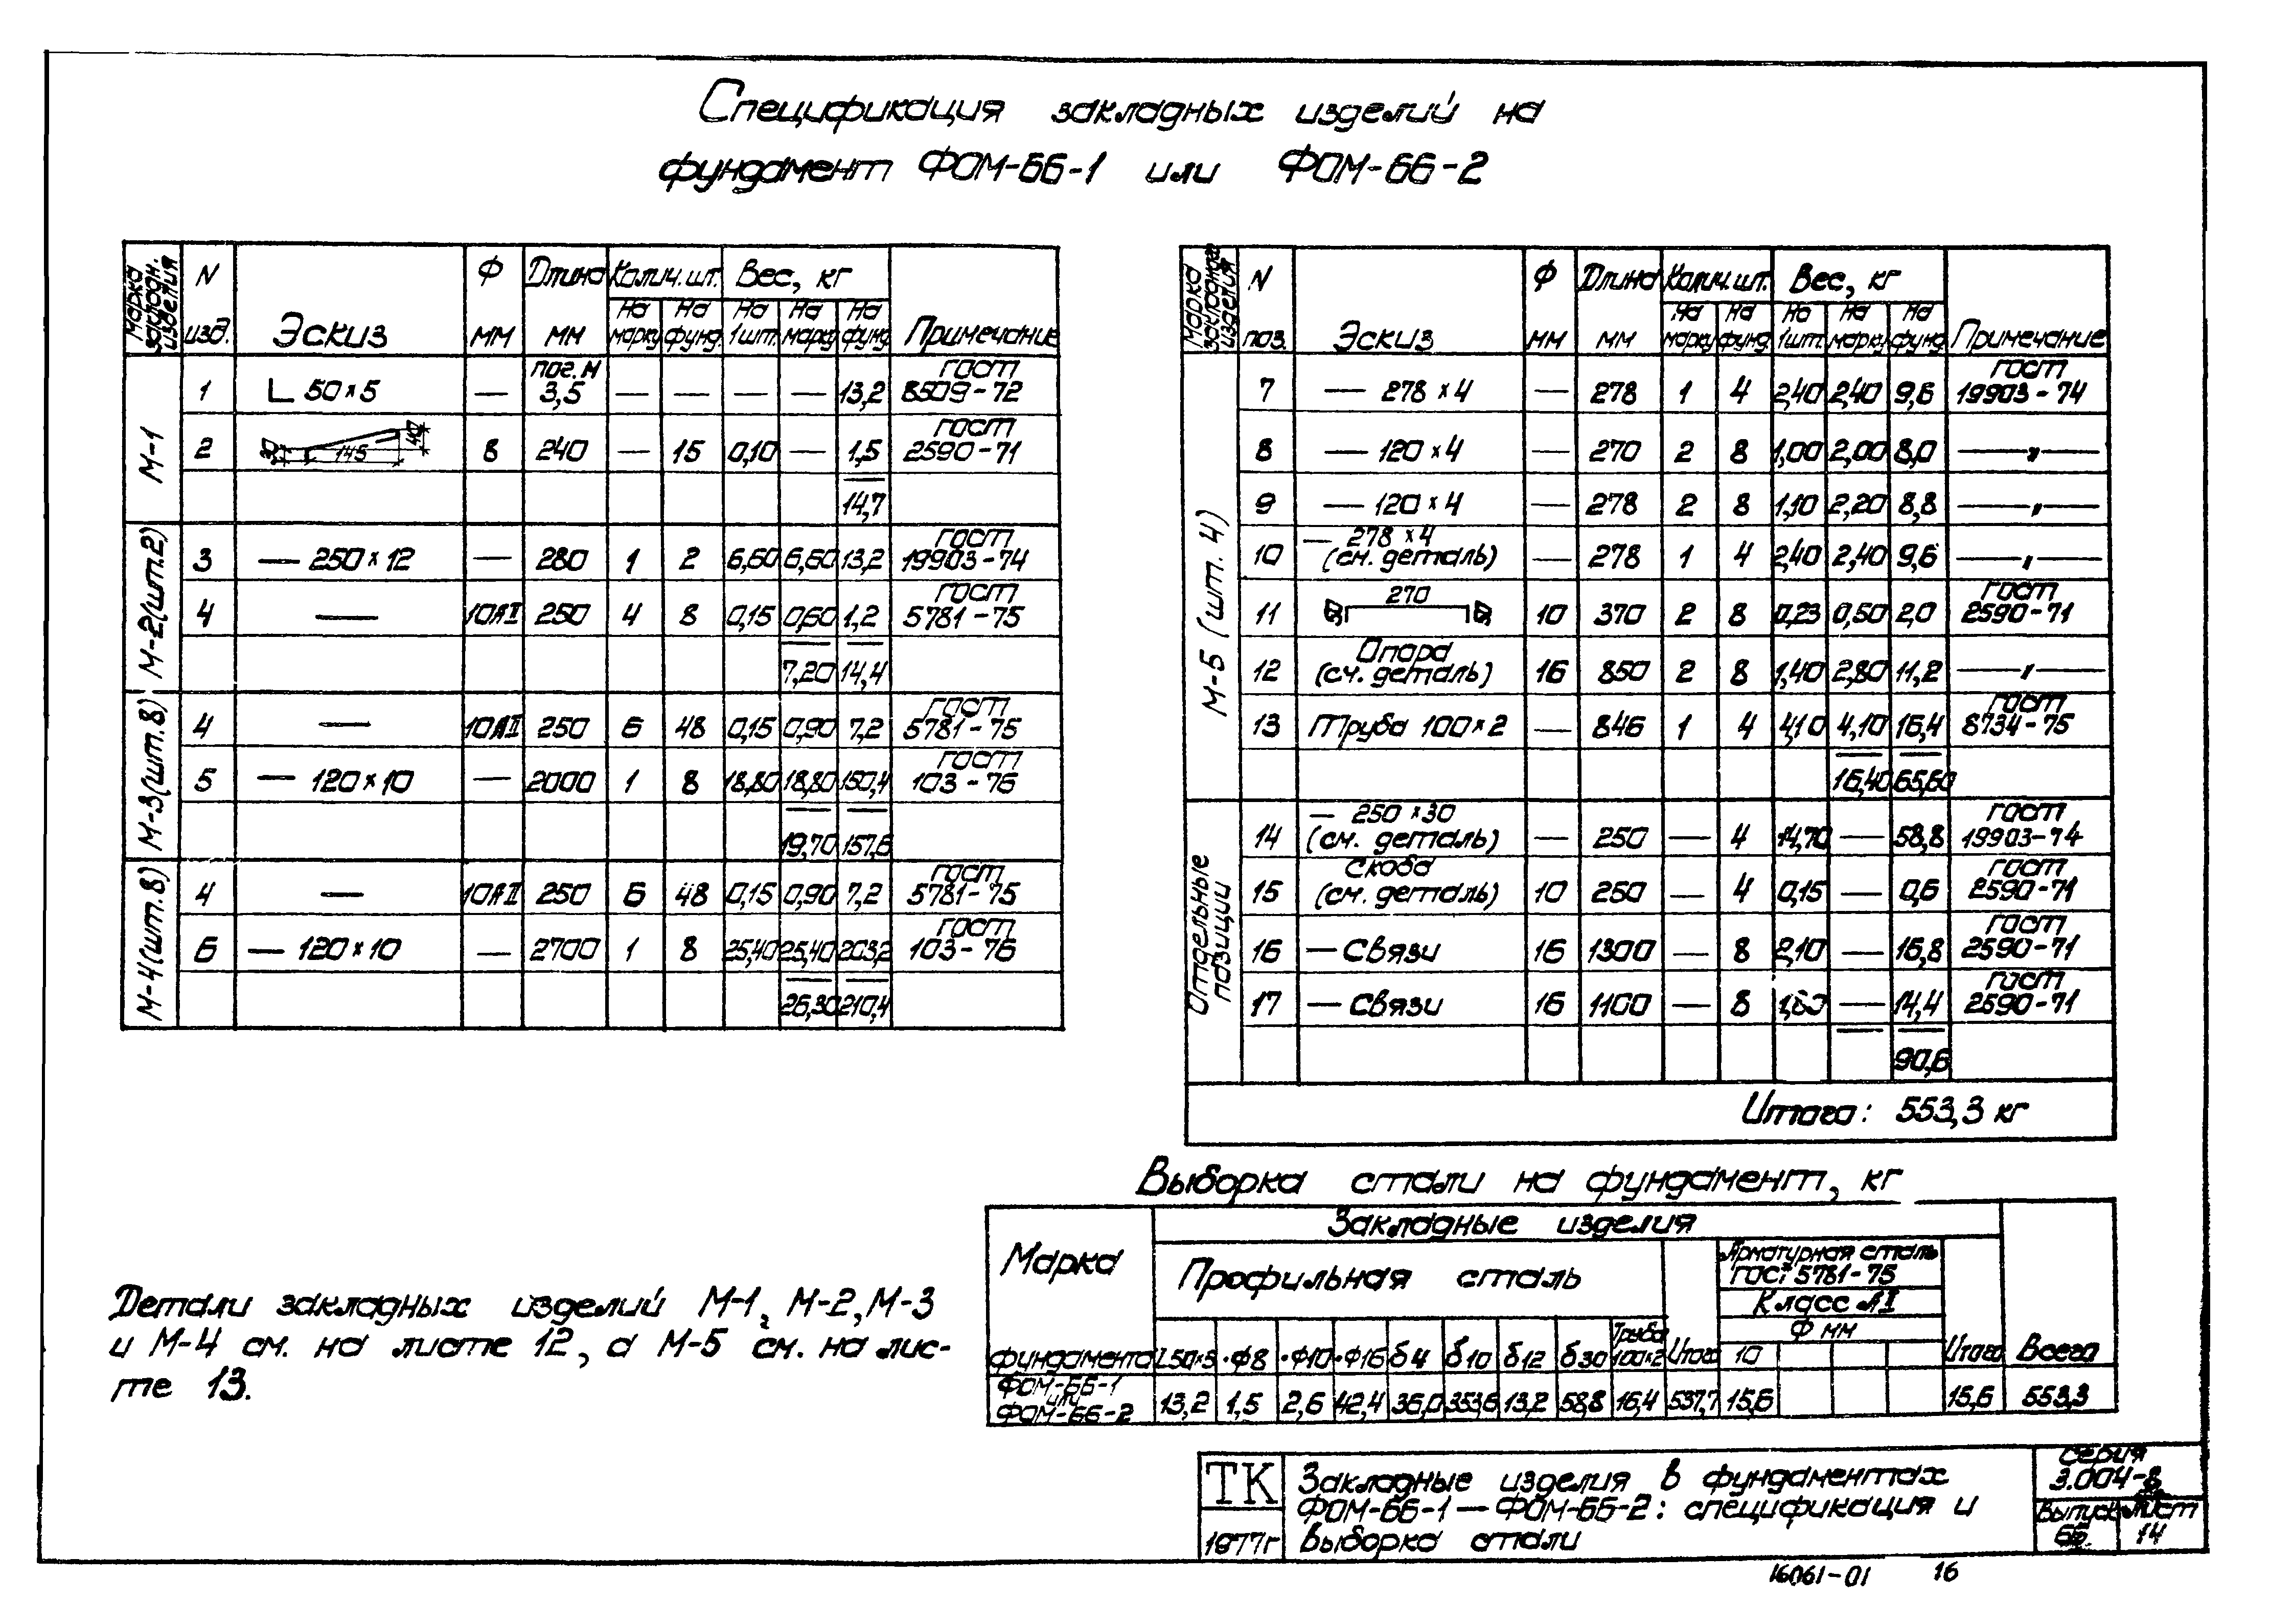 Спецификация закладных изделий на
фундамент ФОМ-6Б-1 или ФОМ-6Б-2
Марка закладн. изделия | N изд. | Эскиз | Ф мм | Длина мм | Колич. шт. | Вес, кг | Примечание
На марку | На фунд. | На 1шт. | На марку | На фунд.
М-1
1 | L 50×5 | — | пог. м 3,5 | — | — | — | — | 13,2 | ГОСТ 8509-72
2 | 145 | 8 | 240 | — | 15 | 0,10 | — | 1,5 | ГОСТ 2590-71
14,7
М-2 (шт. 2)
3 | — 250×12 | — | 280 | 1 | 2 | 6,60 | 6,60 | 13,2 | ГОСТ 19903-74
4 | — | 10АII | 250 | 4 | 8 | 0,15 | 0,60 | 1,2 | ГОСТ 5781-75
7,20 | 14,4
М-3 (шт. 8)
4 | — | 10АII | 250 | 6 | 48 | 0,15 | 0,90 | 7,2 | ГОСТ 5781-75
5 | — 120×10 | — | 2000 | 1 | 8 | 18,80 | 18,80 | 150,4 | ГОСТ 103-76
19,70 | 157,6
М-4 (шт. 8)
4 | — | 10АII | 250 | 6 | 48 | 0,15 | 0,90 | 7,2 | ГОСТ 5781-75
6 | — 120×10 | — | 2700 | 1 | 8 | 25,40 | 25,40 | 203,2 | ГОСТ 103-76
26,30 | 210,4
Марка изделия | N поз. | Эскиз | Ф мм | Длина мм | Колич. шт. | Вес, кг | Примечание
На марку | На фунд. | На 1шт. | На марку | На фунд.
М-5 (шт. 4)
7 | — 278×4 | — | 278 | 1 | 4 | 2,40 | 2,40 | 9,6 | ГОСТ 19903-74
8 | — 120×4 | — | 270 | 2 | 8 | 1,00 | 2,00 | 8,0 | —„—
9 | — 120×4 | — | 278 | 2 | 8 | 1,10 | 2,20 | 8,8 | —„—
10 | — 278×4 (см. деталь) | — | 278 | 1 | 4 | 2,40 | 2,40 | 9,6 | —„—
11 | 270 | 10 | 370 | 2 | 8 | 0,23 | 0,50 | 2,0 | ГОСТ 2590-71
12 | Опора (см. деталь) | 16 | 850 | 2 | 8 | 1,40 | 2,80 | 11,2 | —„—
13 | Труба 100×2 | — | 846 | 1 | 4 | 4,10 | 4,10 | 16,4 | ГОСТ 8734-75
16,40 | 65,60
Отдельные позиции
14 | — 250×30 (см. деталь) | — | 250 | — | 4 | 14,70 | — | 58,8 | ГОСТ 19903-74
15 | Скоба (см. деталь) | 10 | 250 | — | 4 | 0,15 | — | 0,6 | ГОСТ 2590-71
16 | — Связи | 16 | 1300 | — | 8 | 2,10 | — | 16,8 | ГОСТ 2590-71
17 | — Связи | 16 | 1100 | — | 8 | 1,80 | — | 14,4 | ГОСТ 2590-71
90,6
Итого: 553,3 кг
Выборка стали на фундамент, кг
Марка фундамента | Закладные изделия | Всего
Профильная сталь | Итого | Арматурная сталь ГОСТ 5781-75 | Итого
Класс АI
Ф мм
L50×5 | •Ф8 | •Ф10 | •Ф16 | б4 | б10 | б12 | б30 | Труба 100×2 | 10
ФОМ-6Б-1 или ФОМ-6Б-2 | 13,2 | 1,5 | 2,6 | 42,4 | 36,0 | 353,6 | 13,2 | 58,8 | 16,4 | 537,7 | 15,6 | 15,6 | 553,3
Детали закладных изделий М-1, М-2, М-3
и М-4 см. на листе 12, а М-5 см. на лис-
те 13.
ТК
1977г
Закладные изделия в фундаментах
ФОМ-6Б-1 — ФОМ-6Б-2: спецификация и
выборка стали
Серия
3.004-8
Выпуск
Лист
14
16061-01 16